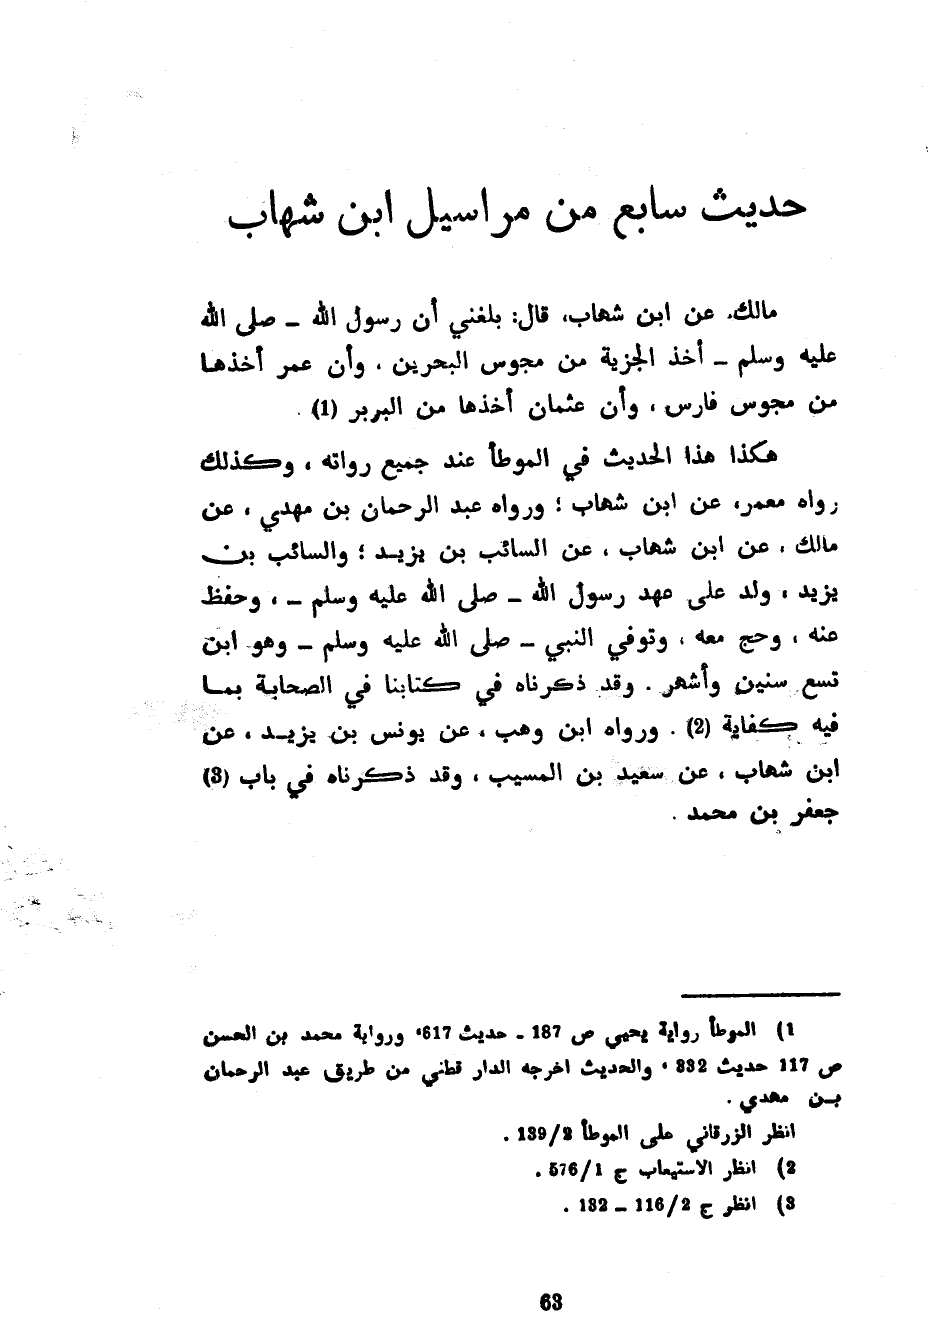 حديث سابع من مراسيل ابن شهاب
مالك، عن ابن شهاب، قال: بلغني أن رسول الله ـ صلى الله
عليه وسلم ـ أخذ الجزية من مجوس البحرين ، وأن عمر أخذها
من مجوس فارس ، وأن عثمان أخذها من البربر (1) .
هكذا هذا الحديث في الموطأ عند جميع رواته ، وكذلك
رواه معمر، عن ابن شهاب ؛ ورواه عبد الرحمان بن مهدي ، عن
مالك ، عن ابن شهاب ، عن السائب بن يزيد ؛ والسائب بن
يزيد ، ولد على عهد رسول الله ـ صلى الله عليه وسلم ـ ، وحفظ
عنه ، وحج معه ، وتوفي النبي ـ صلى الله عليه وسلم ـ وهو ابن
تسع سنين وأشهر . وقد ذكرناه في كتابنا في الصحابة بما
فيه كفاية (2) . ورواه ابن وهب ، عن يونس بن يزيد ، عن
ابن شهاب ، عن سعيد بن المسيب ، وقد ذكرناه في باب (3)
جعفر بن محمد .
1) الموطأ رواية يحيى ص 187 ـ حديث 617، ورواية محمد بن الحسن
ص 117 حديث 332 ، والحديث اخرجه الدار قطني من طريق عبد الرحمان
بن مهدي .
انظر الزرقاني على الموطأ 2/139 .
2) انظر الاستيعاب ج 1/576 .
3) انظر ج 2/116 ـ 132 .
63